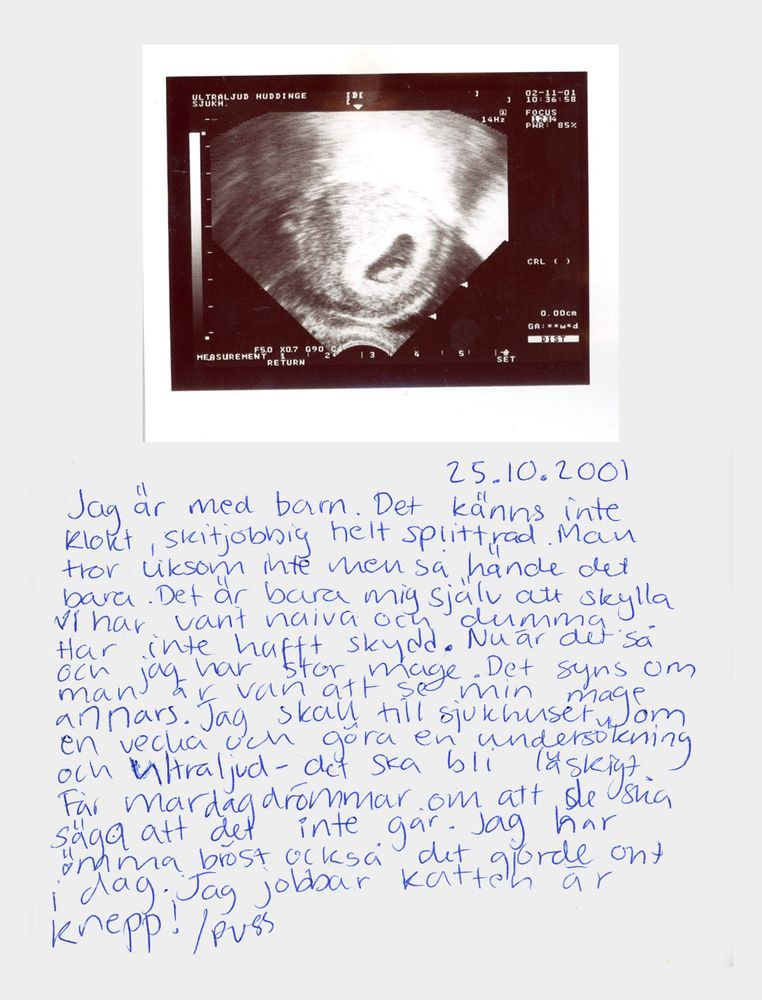 ULTRALJUD HUDDINGE
SJUKH.
02-11-01
10:36:58
14Hz
FOCUS
1234
PWR: 85%
CRL ( )
0.00cm
GA:**w*d
DIST
F5.0 X0.7 G90 C4
MEASUREMENT 1 2 3 4 5
RETURN
SET
25.10.2001
Jag är med barn. Det känns inte
klokt, skitjobbig helt splittrad. Man
tror liksom inte men så hände det
bara. Det är bara mig själv att skylla
Vi har vant naiva och dumma.
Har inte hafft skydd. Nu är det så
och jag har stor mage. Det syns om
man är van att se min mage
annars. Jag skall till sjukhuset om
en vecka och göra en undersökning
och Ultraljud - det ska bli läskigt
Får mardagdrömmar om att de ska
säga att det inte går. Jag har
ömma bröst också det gjorde ont
i dag. Jag jobbar katten är
knepp! /puss